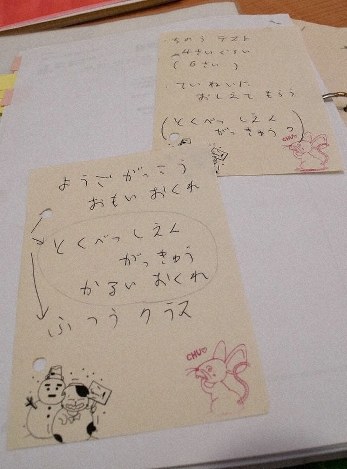 ちのう テスト
4さいぐらい
(6さい)
ていねいに
おしえてもらう
(とくべつ しえん
がっきゅう)
CHU
ようご がっこう
おもい おくれ
とくべつ しえん
がっきゅう
かるい おくれ
ふつう クラス
CHU♡